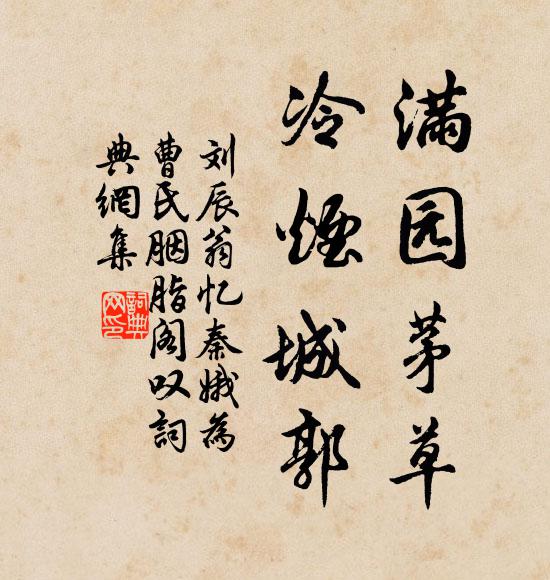 满园茅草
冷烟城郭
刘辰翁忆秦娥为
曹氏胭脂阁叹詞
典網集
詞典网印